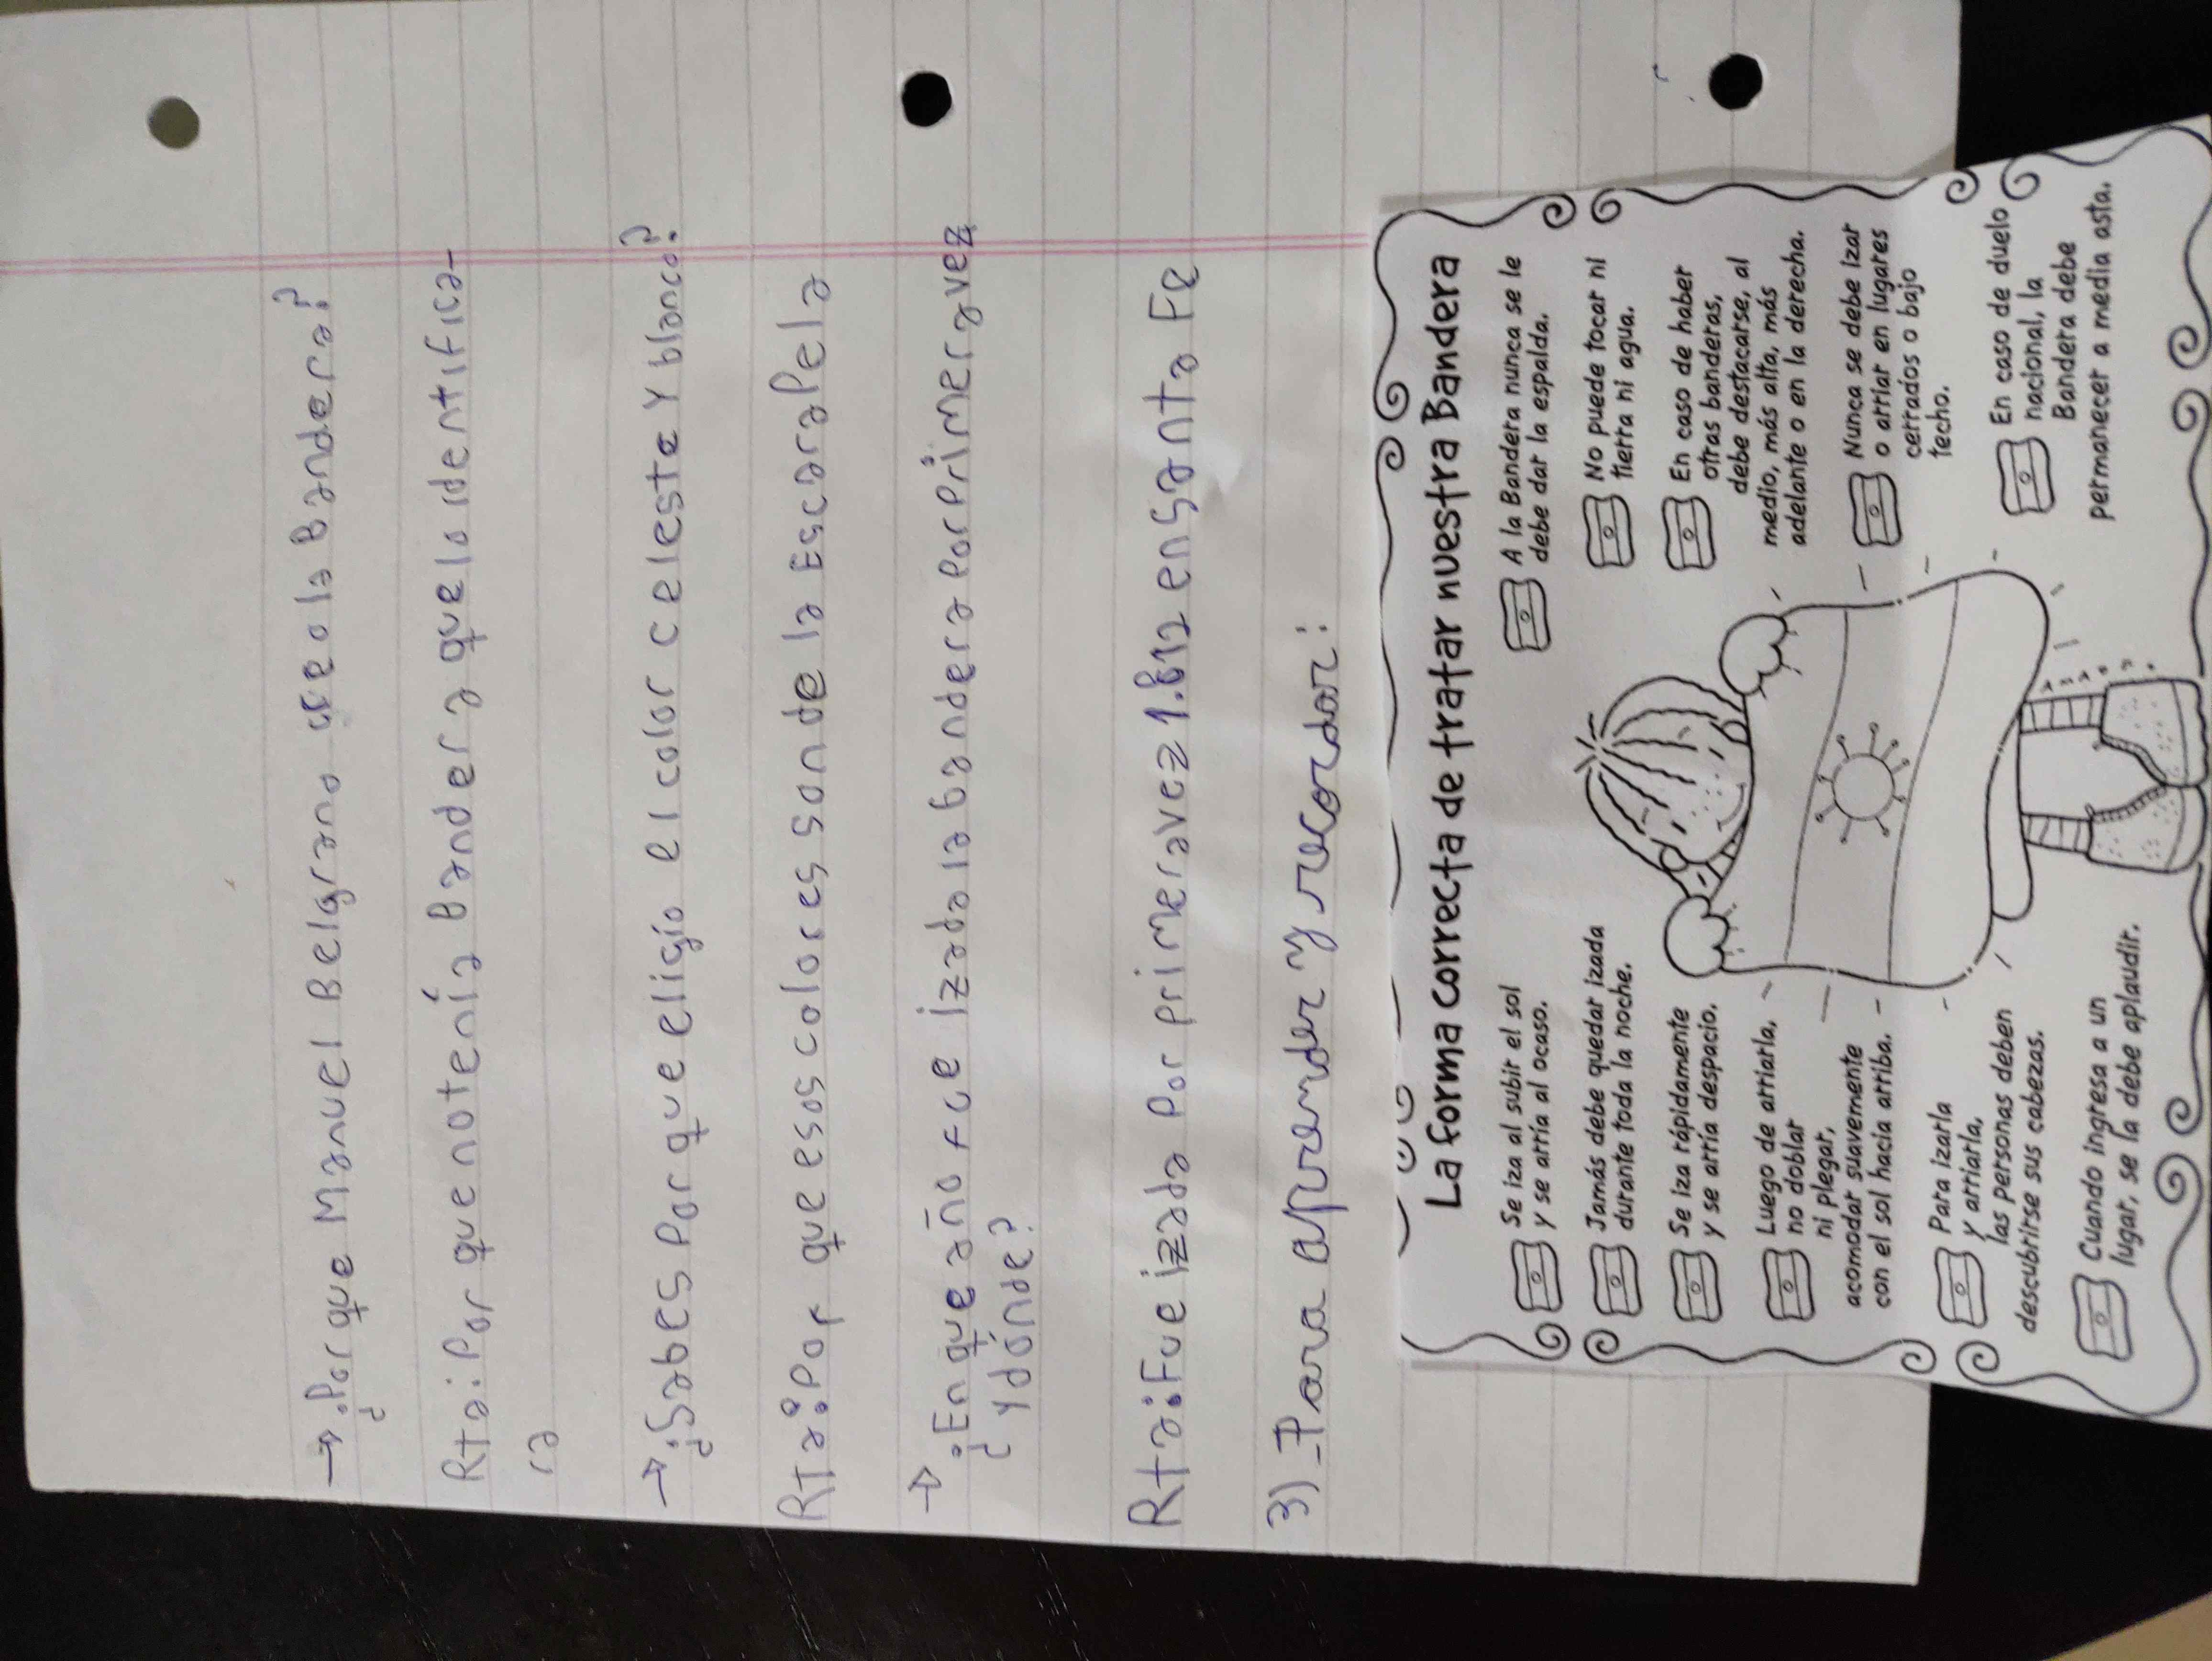 → ¿Por que Manuel Belgrano creo la Bandera?
Rta: Por que no tenía Bandera que lo identifica-
ra
→ ¿Sabes por que eligio el color celeste y blanco?
Rta: Por que esos colores son de la Escarapela
→ ¿En que año fue izada la bandera por primera vez
¿Y dónde?
Rta: Fue izada por primera vez 1.812 en santa Fe
3)_Para aprender y recordar:
La forma correcta de tratar nuestra Bandera
Se iza al subir el sol
y se arría al ocaso.
Jamás debe quedar izada
durante toda la noche.
Se iza rápidamente
y se arría despacio.
Luego de arriarla,
no doblar
ni plegar,
acomodar suavemente
con el sol hacia arriba.
Para izarla
y arriarla,
las personas deben
descubrirse sus cabezas.
Cuando ingresa a un
lugar, se la debe aplaudir.
A la Bandera nunca se le
debe dar la espalda.
No puede tocar ni
tierra ni agua.
En caso de haber
otras banderas,
debe destacarse, al
medio, más alta, más
adelante o en la derecha.
Nunca se debe izar
o arriar en lugares
cerrados o bajo
techo.
En caso de duelo
nacional, la
Bandera debe
permanecer a media asta.